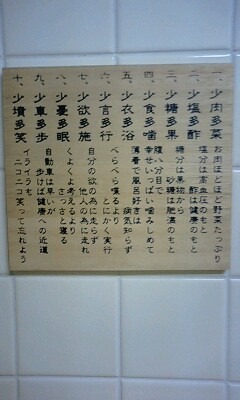 一、少肉多菜
お肉ほどほど野菜たっぷり
二、少塩多酢
塩分は高血圧のもと
酢は健康のもと
三、少糖多果
糖分は果物から
砂糖は肥満のもと
四、少食多噛
腹八分目で
幸せいっぱい噛みしめて
五、少衣多浴
薄着で風呂好きは
病気知らず
六、少言多行
べらべら喋るより
とにかく実行
七、少欲多施
自分の欲の為に走らず
他人の為に走れ
八、少憂多眠
くよくよ考えるより
さっさと寝る
九、少車多歩
自動車は早いが
歩けば健康への近道
十、少憤多笑
イライラも
ニコニコ笑って忘れよう